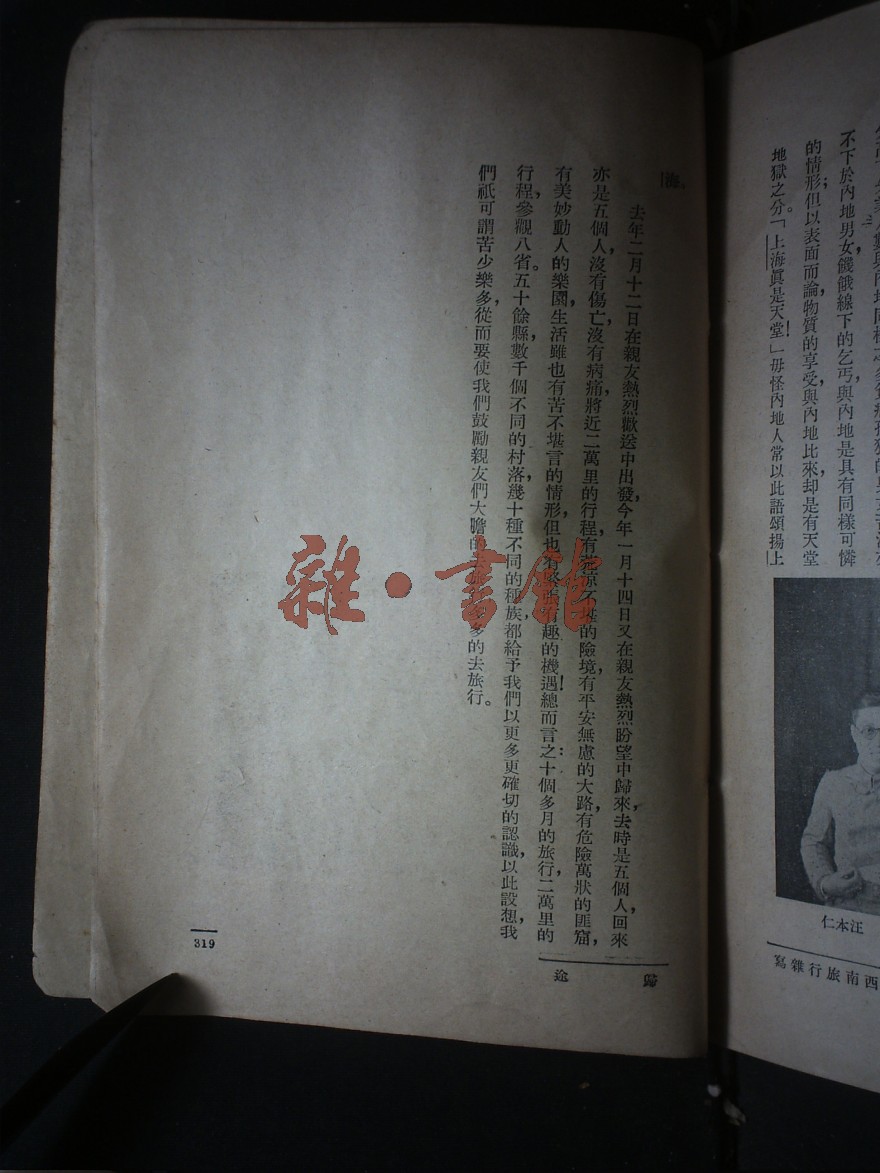 不下於內地男女饑餓線下的乞丐，與內地是具有同樣可憐
的情形；但以表面而論，物質的享受，與內地比來，却是有天堂
地獄之分。「上海眞是天堂！」毋怪內地人常以此語頌揚上
汪本仁
西南旅行雜寫
海。
去年二月十二日在親友熱烈歡送中出發，今年一月十四日又在親友熱烈盼望中歸來，去時是五個人，回來
亦是五個人，沒有傷亡，沒有病痛，將近二萬里的行程，有 不堪的險境，有平安無慮的大路，有危險萬狀的匪窟，
有美妙動人的樂園，生活雖也有苦不堪言的情形，但也有 有趣的機遇！總而言之：十個多月的旅行，二萬里的
行程，參觀八省。五十餘縣，數千個不同的村落，幾十種不同的種族，都給予我們以更多更確切的認識，以此設想，我
們祇可謂苦少樂多，從而要使我們鼓勵親友們大膽的 多的去旅行。
歸途
319
雜·書館